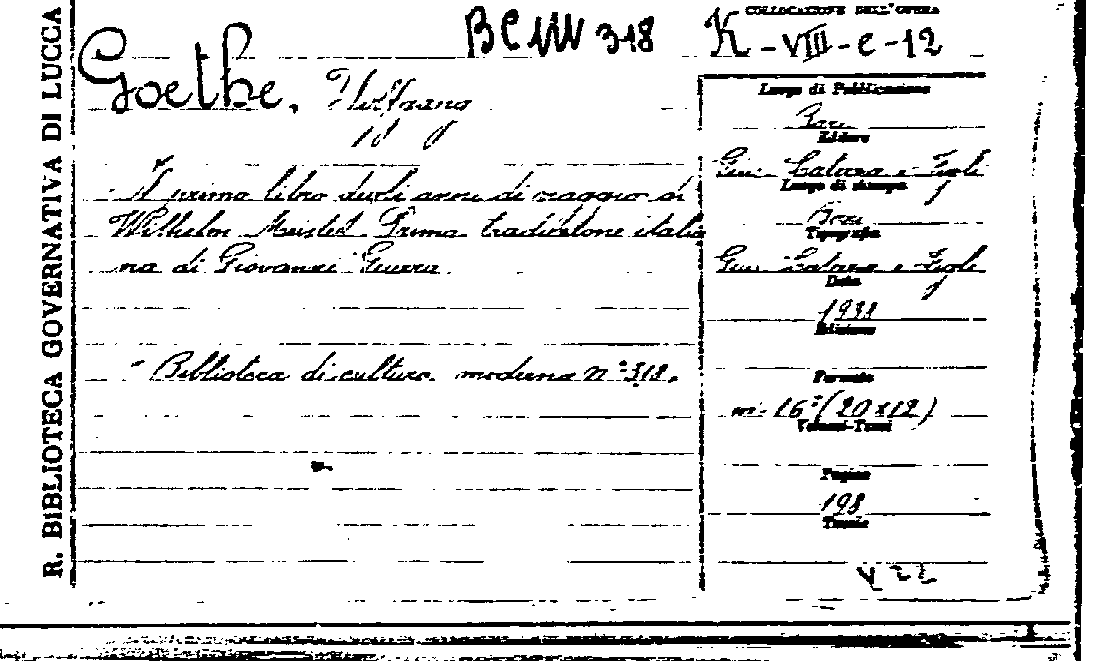 R. BIBLIOTECA GOVERNATIVA DI LUCCA
COLLOCAZIONE DELL'OPERA
BCM 318 K-VIII-e-12
Goethe, Wolfgang
Il primo libro degli anni di viaggio di
Wilhelm Meister. Prima traduzione italia
na di Giovanni Guerra
Biblioteca di cultura moderna n° 318.
Luogo di Pubblicazione
Bari
Editore
Gius. Laterza e Figli
Luogo di stampa
Bari
Tipografia
Gius. Laterza e Figli
Data
1938
Edizione
Formato
in-16° (20x12)
Volumi-Tomi
Pagine
198
Tavole